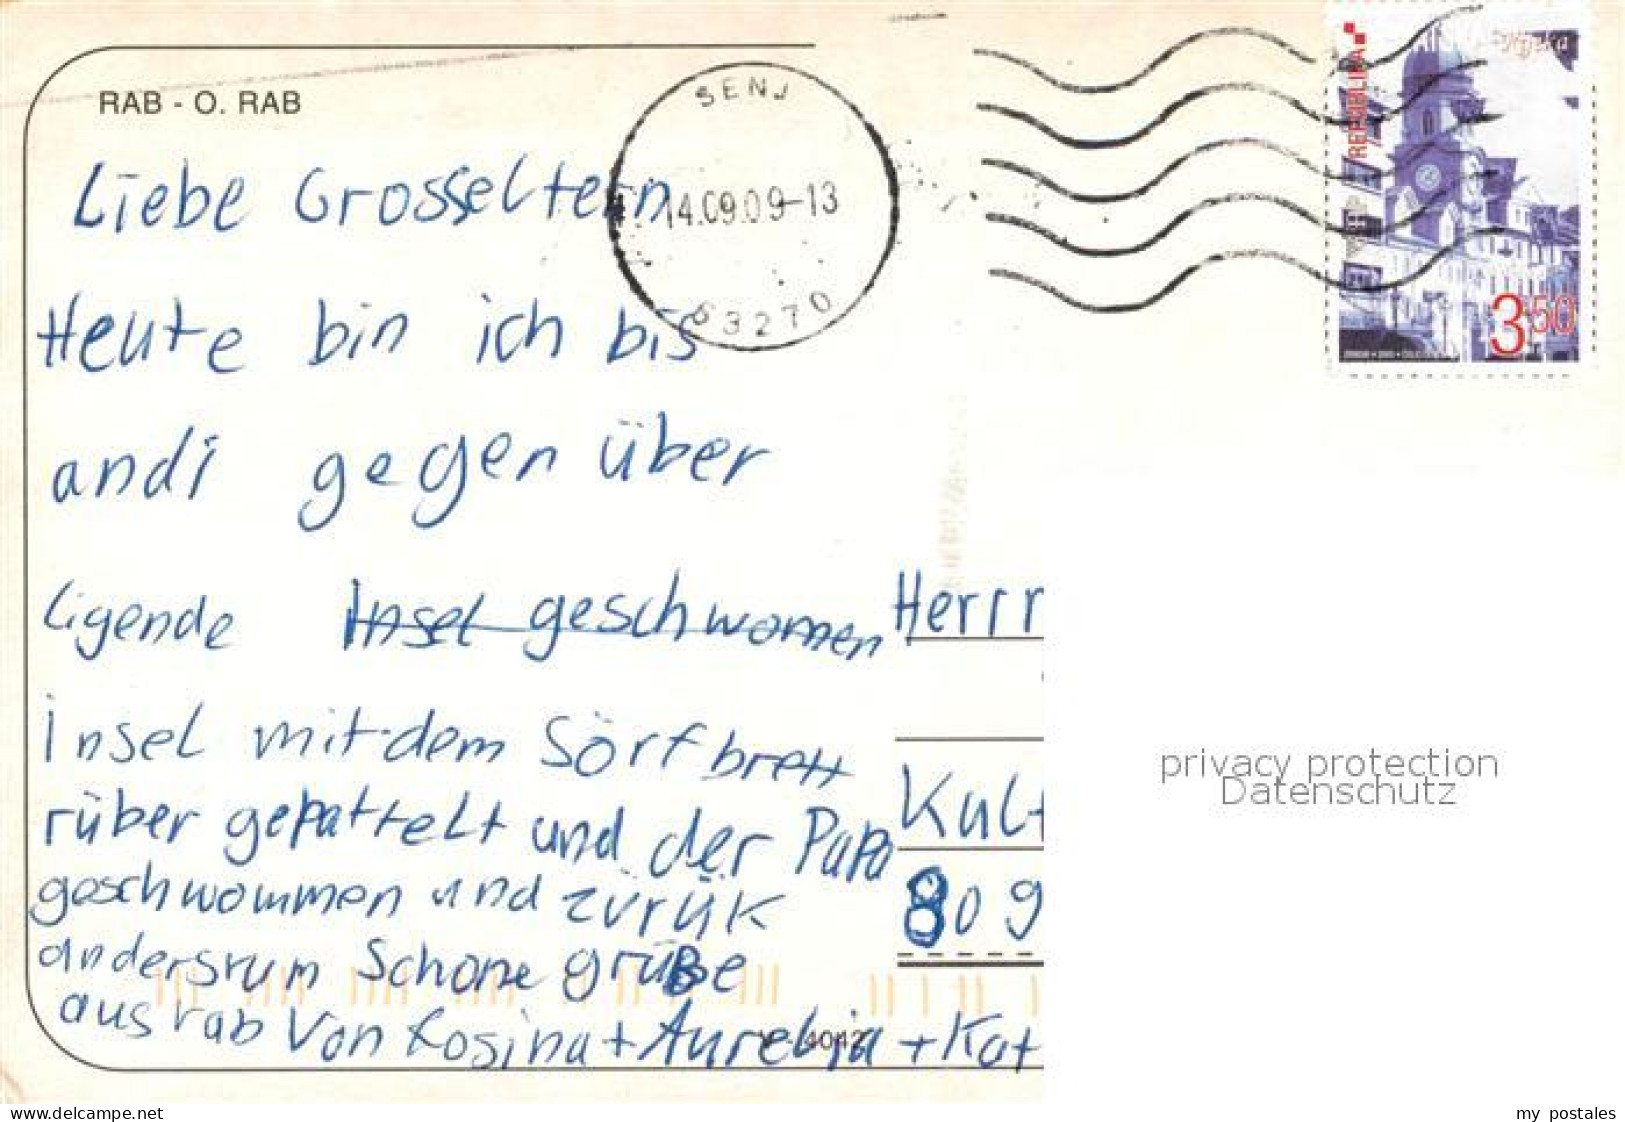 RAB - O. RAB
SENJ
14.09.09-13
53270
REPUBLIKA
3,50
Liebe Grosseltern
Heute bin ich bis
andi gegen über
ligende Insel geschwomen
insel mit dem Sörfbrett
rüber gepattelt und der Papa
geschwommen und zürük
andersrum Schöne grüße
aus rab Von Rosina + Aurelia + Kat
Herrr
Kult
809
4042
privacy protection
Datenschutz
www.delcampe.net
my_postales